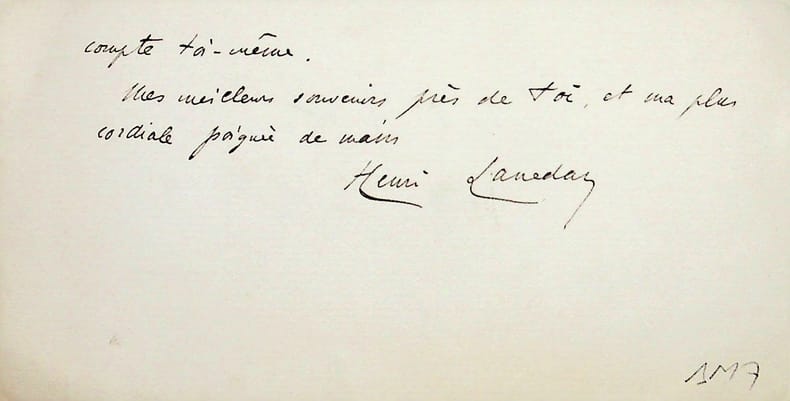 compte toi-même.
Mes meilleurs souvenirs près de toi, et ma plus
cordiale poignée de mains
Henri Lavedan